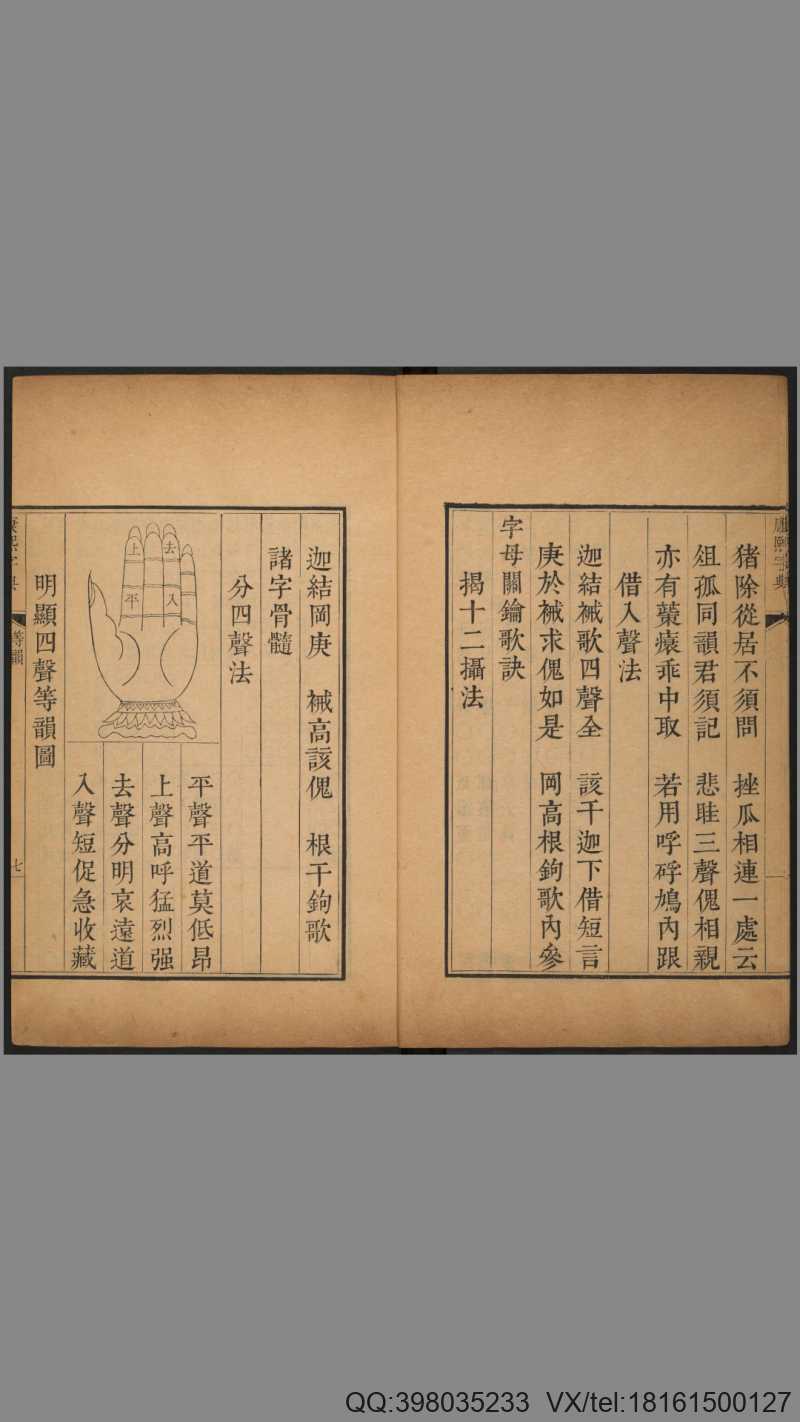 康熙字典
猪除從居不須問 挫瓜相連一處云
俎孤同韻君須記 悲眭三聲傀相親
亦有蔈瘬乖中取 若用呼硣鳩內跟
借入聲法
迦結裓歌四聲全 該干迦下借短言
庚於裓求傀如是 岡高根鉤歌內參
字母關鑰歌訣
揭十二攝法
迦結岡庚 裓高該傀 根干鉤歌
諸字骨髓
分四聲法
上 去
平 入
平聲平道莫低昂
上聲高呼猛烈强
去聲分明哀遠道
入聲短促急收藏
明顯四聲等韻圖
康熙字典 等韻 七
QQ:398035233 VX/tel:18161500127